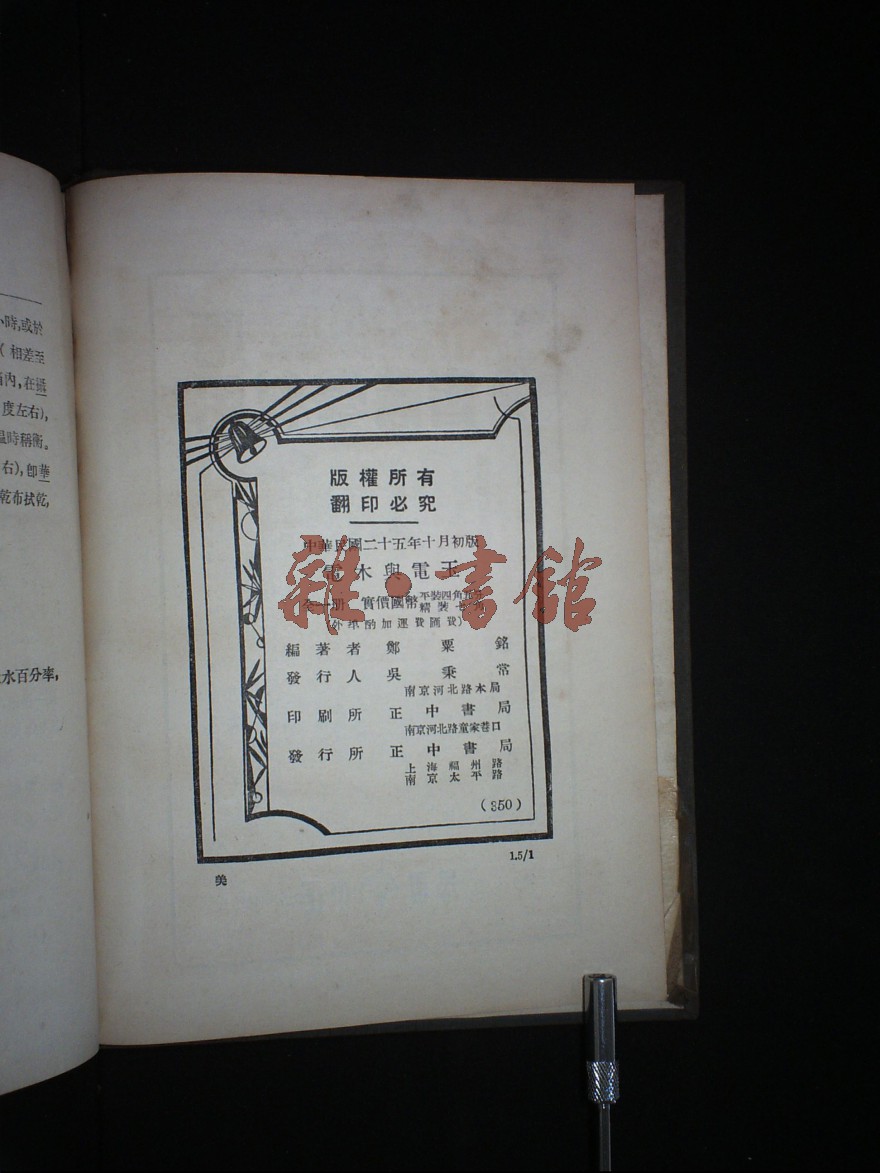 小時,或於
( 相差至
內,在攝
度左右),
溫時稱衡。
右),卽華
乾布拭乾,
水百分率,
版權所有
翻印必究
中華民國二十五年十月初版
電木與電玉
全一册 實價國幣 平裝四角
精裝七
(外埠酌加運費匯費)
編著者 鄭粟銘
發行人 吳秉常
南京河北路本局
印刷所 正中書局
南京河北路童家巷口
發行所 正中書局
上海福州路
南京太平路
(350)
1.5/1
美
雜·書館